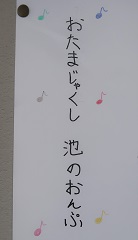 おたまじゃくし 池のおんぷ